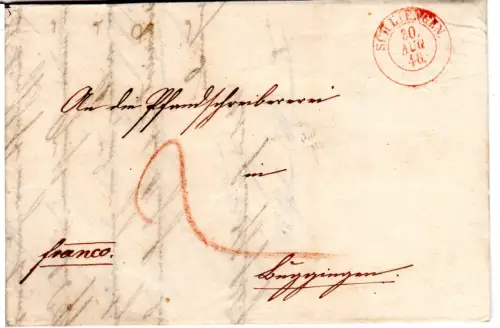 SCHLIENGEN.
30.
AUG
46.
An die Pfandschreibererei
in
2
franco.
Buggingen.